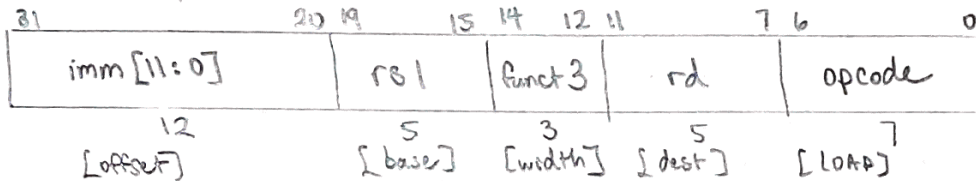 31 20 19 15 14 12 11 7 6 0
imm [11:0] rs1 funct3 rd opcode
12 5 3 5 7
[offset] [base] [width] [dest] [LOAD]